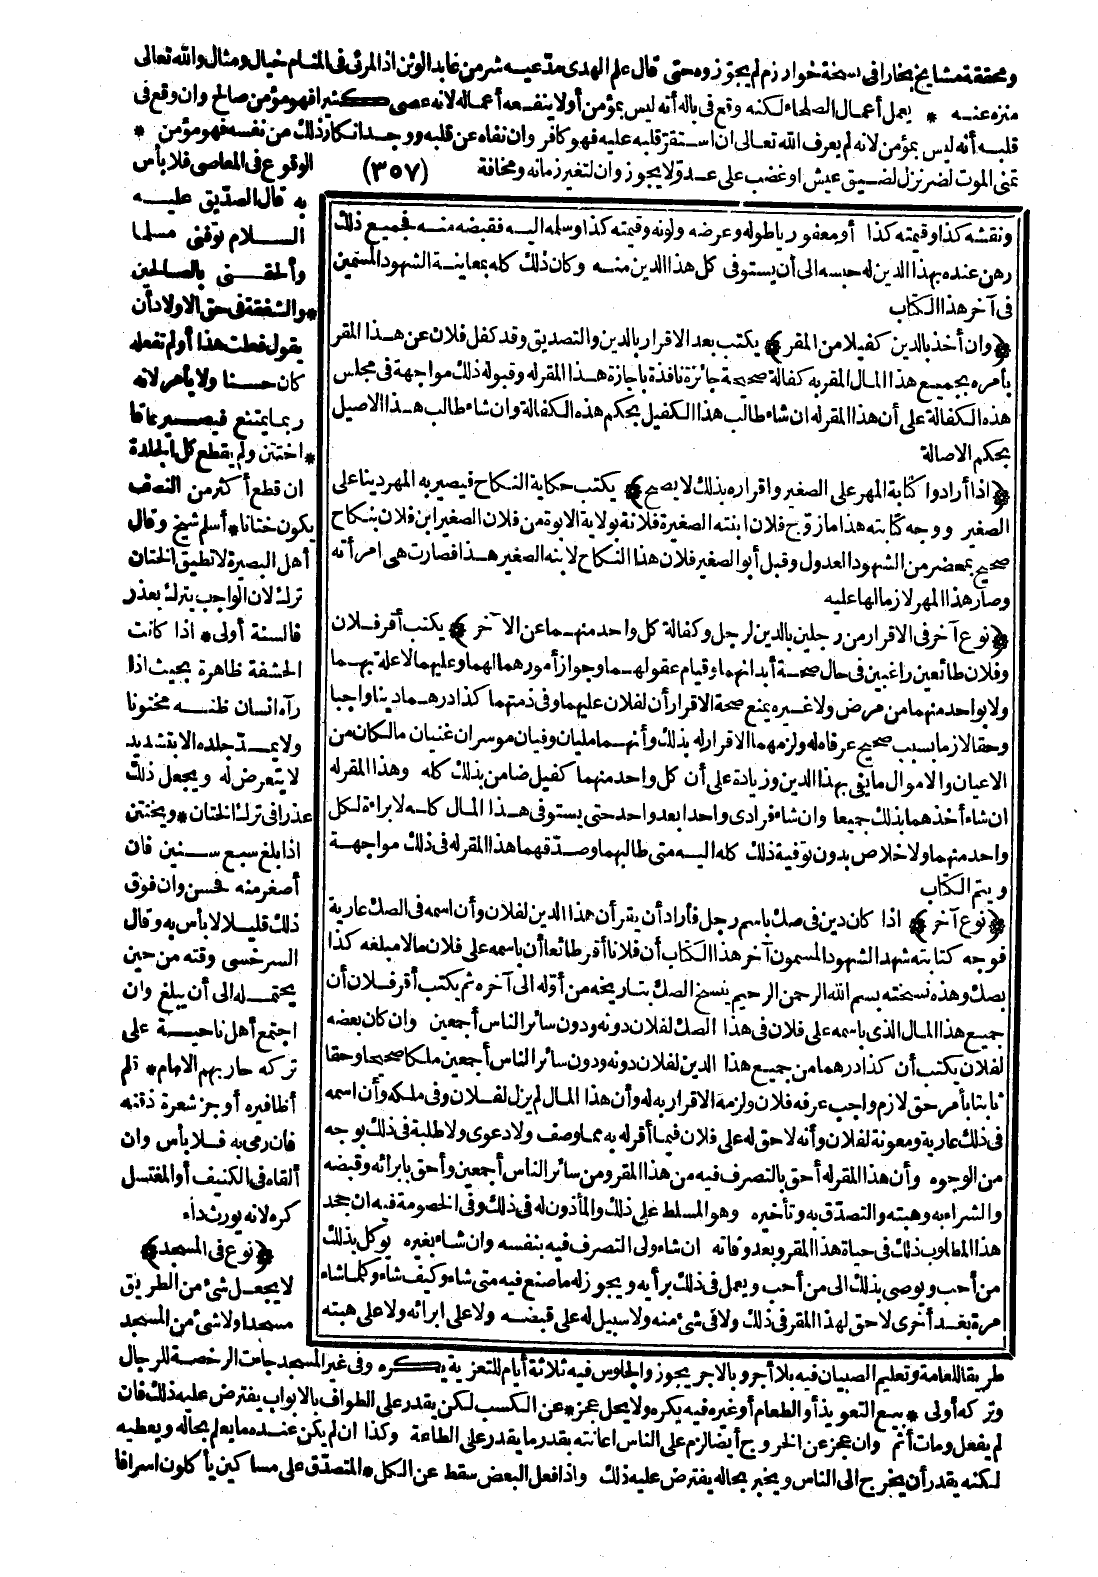 ومحققة مشايخ بخارا فى نسخة خوارزم لم يجوّزوه حتى قال علم الهدى مدّعيه شر من عابد الوثن اذ المرئى فى المنام خيال ومثال والله تعالى
منزه عنه * يعمل أعمال الصلحاء لكنه وقع فى باله أنه ليس بمؤمن أولا ينفعه أعماله لانه عصى كثيرا فهو مؤمن صالح وان وقع فى
قلبه أنه ليس بمؤمن لانه لم يعرف الله تعالى ان استقرّ قلبه عليه فهو كافر وان نفاه عن قلبه ووجد انكار ذلك من نفسه فهو مؤمن *
تمنى الموت لضر نزل لضيق عيش او غضب على عدوّ لا يجوز وان لتغير زمانه ومخافة (٣٥٧) الوقوع فى المعاصى فلا بأس
به قال الصدّيق عليه
السلام توفنى مسلما
وألحقنى بالصالحين
* والشفقة فى حق الاولاد أن
يقول فعلت هذا أولم تفعله
كان حسنا ولا يأمر لانه
ربما يمتنع فيصير عاقا
* اختتن ولم يقطع كل الجلدة
ان قطع أكثر من النصف
يكون ختانا * أسلم شيخ وقال
أهل البصيرة لا تطيق الختان
ترك لان الواجب يترك بعذر
فالسنة أولى * اذا كانت
الحشفة ظاهرة بحيث اذا
رآه انسان ظنه مختونا
ولا يمدّ جلده الا بتشديد
لا يتعرض له ويجعل ذلك
عذرا فى ترك الختان * ويختتن
اذا بلغ سبع سنين فان
أصغر منه فحسن وان فوق
ذلك قليلا لا بأس به وقال
السرخسى وقته من حين
يحتمله الى أن يبلغ وان
اجتمع أهل ناحية على
تركه حاربهم الامام * قلم
أظافيره أو جز شعرة ذقنه
فان رمى به فلا بأس وان
ألقاه فى الكنيف أو المغتسل
كره لانه يورث داء
﴿نوع فى المسجد﴾
لا يجعل شئ من الطريق
مسجدا ولا شئ من المسجد
ونقشه كذا وقيمته كذا أو معفوريا طوله وعرضه ولونه وقيمته كذا وسلمه اليه فقبضه منه فجميع ذلك
رهن عنده بهذا الدين له حبسه الى أن يستوفى كل هذا الدين منه وكان ذلك كله بمعاينة الشهود المسمين
فى آخر هذا الكتاب
﴿وان أخذ بالدين كفيلا من المقر﴾ يكتب بعد الاقرار بالدين والتصديق وقد كفل فلان عن هذا المقر
بأمره بجميع هذا المال المقر به كفالة صحيحة جائزة نافذة باجازة هذا المقر له وقبوله ذلك مواجهة فى مجلس
هذه الكفالة على أن هذا المقر له ان شاء طالب هذا الكفيل بحكم هذه الكفالة وان شاء طالب هذا الاصيل
بحكم الاصالة
﴿اذا أرادوا كتابة المهر على الصغير واقراره بذلك لا يصح﴾ يكتب حكاية النكاح فيصير به المهر دينا على
الصغير ووجه كتابته هذا ما زوّج فلان ابنته الصغيرة فلانة بولاية الابوة من فلان الصغير ابن فلان بنكاح
صحيح بمحضر من الشهود العدول وقبل أبو الصغير فلان هذا النكاح لابنه الصغير هذا فصارت هى امرأته
وصار هذا المهر لازما لها عليه
﴿نوع آخر فى الاقرار من رجلين بالدين لرجل وكفالة كل واحد منهما عن الآخر﴾ يكتب أقر فلان
وفلان طائعين راغبين فى حال صحة أبدانهما وقيام عقولهما وجواز أمورهما لهما وعليهما لا علة بهما
ولا بواحد منهما من مرض ولا غيره يمنع صحة الاقرار أن لفلان عليهما وفى ذمتهما كذا درهما دينا واجبا
وحقا لازما بسبب صحيح عرفاه له ولزمهما الاقرار له بذلك وأنهما مليان وفيان موسران غنيان مالكان من
الاعيان والاموال ما يفى بهذا الدين وزيادة على أن كل واحد منهما كفيل ضامن بذلك كله وهذا المقر له
ان شاء أخذهما بذلك جميعا وان شاء فرادى واحدا بعد واحد حتى يستوفى هذا المال كله لا براءة لكل
واحد منهما ولا خلاص بدون توفية ذلك كله اليه متى طالبهما وصدّقهما هذا المقر له فى ذلك مواجهة
ويتم الكتاب
﴿نوع آخر﴾ اذا كان دين فى صك باسم رجل فأراد أن يقر أن هذا الدين لفلان وأن اسمه فى الصك عارية
فوجه كتابته شهد الشهود المسمون آخر هذا الكتاب أن فلانا أقر طائعا أن باسمه على فلان مالا مبلغه كذا
بصك وهذه نسخته بسم الله الرحمن الرحيم ينسخ الصك بتاريخه من أوّله الى آخره ثم يكتب أقر فلان أن
جميع هذا المال الذى باسمه على فلان فى هذا الصك لفلان دونه ودون سائر الناس أجمعين وان كان بعضه
لفلان يكتب أن كذا درهما من جميع هذا الدين لفلان دونه ودون سائر الناس أجمعين ملكا صحيحا وحقا
ثابتا بأمر حق لازم واجب عرفه فلان ولزمه الاقرار به له وأن هذا المال لم يزل لفلان وفى ملكه وأن اسمه
فى ذلك عارية ومعونة لفلان وأنه لا حق له على فلان فيما أقر له به مما وصف ولا دعوى ولا طلبة فى ذلك بوجه
من الوجوه وأن هذا المقر له أحق بالتصرف فيه من هذا المقر ومن سائر الناس أجمعين وأحق بابرائه وقبضه
والشراء به وهبته والتصدّق به وتأخيره وهو المسلط على ذلك والمأذون له فى ذلك وفى الخصومة فيه ان جحد
هذا المطلوب ذلك فى حياة هذا المقر وبعد وفاته ان شاء ولى التصرف فيه بنفسه وان شاء بغيره يوكل بذلك
من أحب ويوصى بذلك الى من أحب ويعمل فى ذلك برأيه ويجوز له ما صنع فيه متى شاء وكيف شاء وكلما شاء
مرة بعد أخرى لا حق لهذا المقر فى ذلك ولا فى شئ منه ولا سبيل له على قبضه ولا على ابرائه ولا على هبته
طريقا للعامة وتعليم الصبيان فيه بلا أجر وبالاجر يجوز والجلوس فيه ثلاثة أيام للتعزية يكره وفى غير المسجد جاءت الرخصة للرجال
وتركه أولى * بيع التعويذ أو الطعام أو غيره فيه يكره ولا يحل عجز * عن الكسب لكن يقدر على الطواف بالابواب يفترض عليه ذلك فان
لم يفعل ومات أثم وان عجز عن الخروج أيضا لزم على الناس اعانته بقدر ما يقدر على الطاعة وكذا ان لم يكن عنده ما يعلم بحاله ويعطيه
لكنه يقدر أن يخرج الى الناس ويخبر بحاله يفترض عليه ذلك واذا فعل البعض سقط عن الكل * المتصدّق على مساكين يأكلون اسرافا